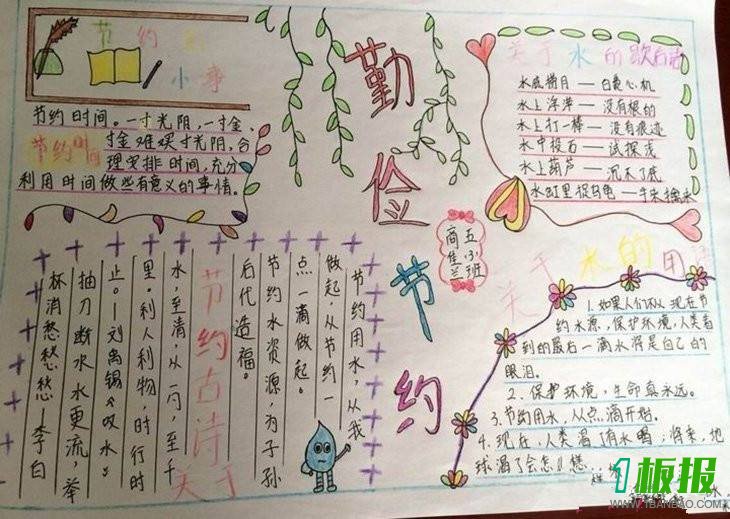 节约
小事
节约时间。一寸光阴,一寸金、
寸金难买寸光阴,合
节约时间
理安排时间,充分
利用时间做些有意义的事情。
勤俭节约
五(3)班
商佳兰
关于水的歇后语
水底捞月——白费心机
水上浮萍——没有根的
水上打一棒——没有痕迹
水中投石——试探浅
水上葫芦——沉不了底
水缸里捉乌龟——手来擒来
节约用水,从我
做起,从节约一
点一滴做起。
节约水资源,为子孙
后代造福。
节约古诗
关于
水,至清,从一勺,至千
里。利人利物,时行时
止。——刘禹锡《叹水》
抽刀断水水更流,举
杯消愁愁愁—李白
关于水的用语
1.如果人们不从现在节
约水源,保护环境,人类看
到的最后一滴水将是自己的
眼泪。
2.保护环境,生命真永远。
3.节约用水,从点滴开始。
4.现在,人类渴了有水喝;将来,地
球渴了会怎么样
1板报
WWW.1BANBAO.COM